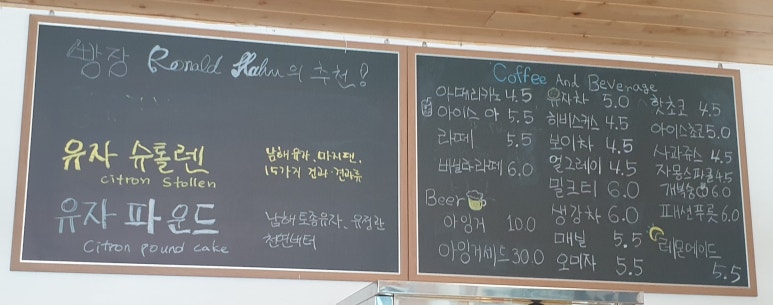 빵장 Ronald Hahn의 추천!
유자 슈톨렌
citron Stollen
남해 유자, 마지팬,
15가지 건과·견과류
유자 파운드
Citron pound cake
남해 토종유자, 유정란
천연버터
Coffee And Beverage
아메리카노 4.5
아이스 아 5.5
라떼 5.5
바닐라라떼 6.0
Beer
아잉거 10.0
아잉거세트 30.0
유자차 5.0
히비스커스 4.5
보이차 4.5
얼그레이 4.5
밀크티 6.0
생강차 6.0
매실 5.5
오미자 5.5
핫초코 4.5
아이스초코 5.0
사과쥬스 4.5
자몽스파클 4.5
개복숭아 6.0
패션푸릇 6.0
레몬에이드
5.5